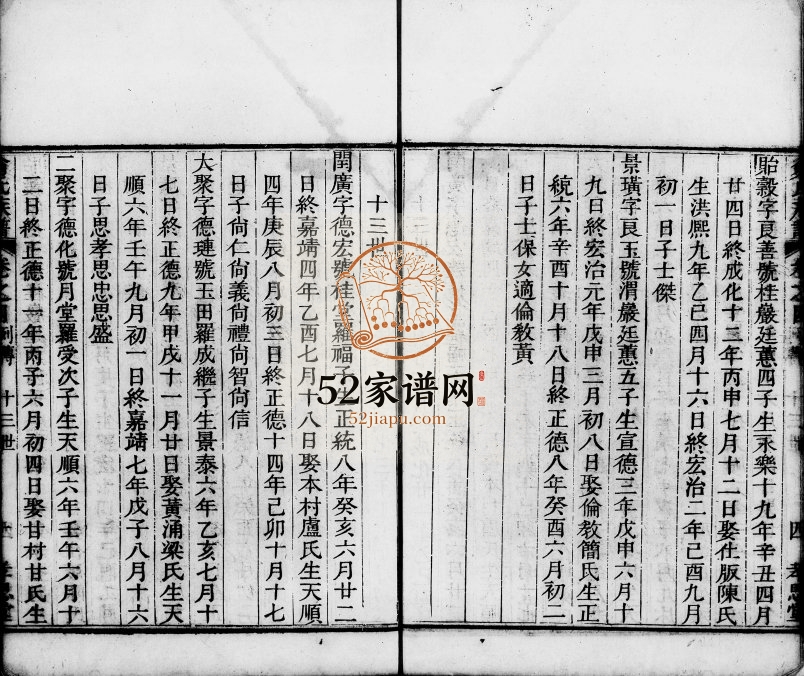 貽穀字艮善號桂嚴廷蕙四子生永樂十九年辛丑四月
廿四日終成化十三年丙申七月十二日娶仕版陳氏
生洪熙九年乙巳四月十六日終宏治二年己酉九月
初一日子士傑
景璜字艮玉號渭嚴廷蕙五子生宣德三年戊申六月十
九日終宏治元年戊申三月初八日娶倫教簡氏生正
統六年辛酉十月十八日終正德八年癸酉六月初二
日子士保女適倫教黃
十三世
閏廣字德宏號桂堂羅福子生正統八年癸亥六月廿二
日終嘉靖四年乙酉七月十八日娶本村盧氏生天順
四年庚辰八月初三日終正德十四年己卯十月十七
日子尚仁尚義尚禮尚智尚信
大聚字德璉號玉田羅成繼子生景泰六年乙亥七月十
七日終正德九年甲戌十一月廿日娶黃涌梁氏生天
順六年壬午九月初一日終嘉靖七年戊子八月十六
日子思孝思忠思盛
二聚字德化號月堂羅受次子生天順六年壬午六月十
二日終正德十一年丙子六月初四日娶甘村甘氏生
十三世
四
孝思堂
52家谱网
52jiapu.com